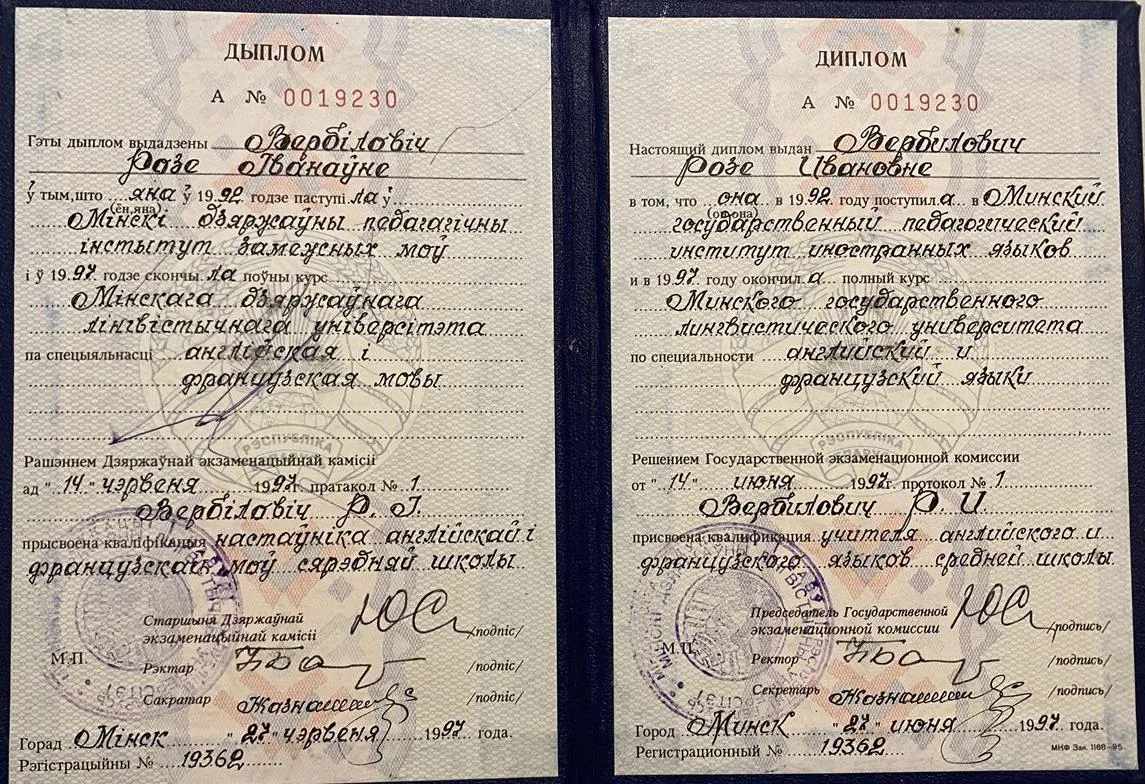 ДЫПЛОМ
А № 0019230
Гэты дыплом выдадзены Вербіловіч
Розе Іванаўне
ў тым, што яна ў 1992 годзе паступіла ў
(ён, яна)
Мінскі дзяржаўны педагагічны
інстытут замежных моў
і ў 1997 годзе скончыла поўны курс
Мінскага дзяржаўнага
лінгвістычнага універсітэта
па спецыяльнасці англійская і
французская мовы
РЭСПУБЛІКА
Рашэннем Дзяржаўнай экзаменацыйнай камісіі
ад "14" чэрвеня 1997г. пратакол № 1
Вербіловіч Р. І.
прысвоена кваліфікацыя настаўніка англійскай і
французскай моў сярэдняй школы
Старшыня Дзяржаўнай
экзаменацыйнай камісіі /подпіс/
М.П.
Рэктар /подпіс/
Сакратар /подпіс/
Горад Мінск "27" чэрвеня 1997 года.
Рэгістрацыйны № 19362
ДИПЛОМ
А № 0019230
Настоящий диплом выдан Вербилович
Розе Ивановне
в том, что она в 1992 году поступила в Минский
(он, она)
государственный педагогический
институт иностранных языков
и в 1997 году окончила полный курс
Минского государственного
лингвистического университета
по специальности английский и
французский языки
РЭСПУБЛІКА
Решением Государственной экзаменационной комиссии
от "14" июня 1997г. протокол № 1
Вербилович Р. И.
присвоена квалификация учителя английского и
французского языков средней школы
Председатель Государственной
экзаменационной комиссии /подпись/
М.П.
Ректор /подпись/
Секретарь /подпись/
Город Минск "27" июня 1997 года.
Регистрационный № 19362
МНФ Зак. 1168-95